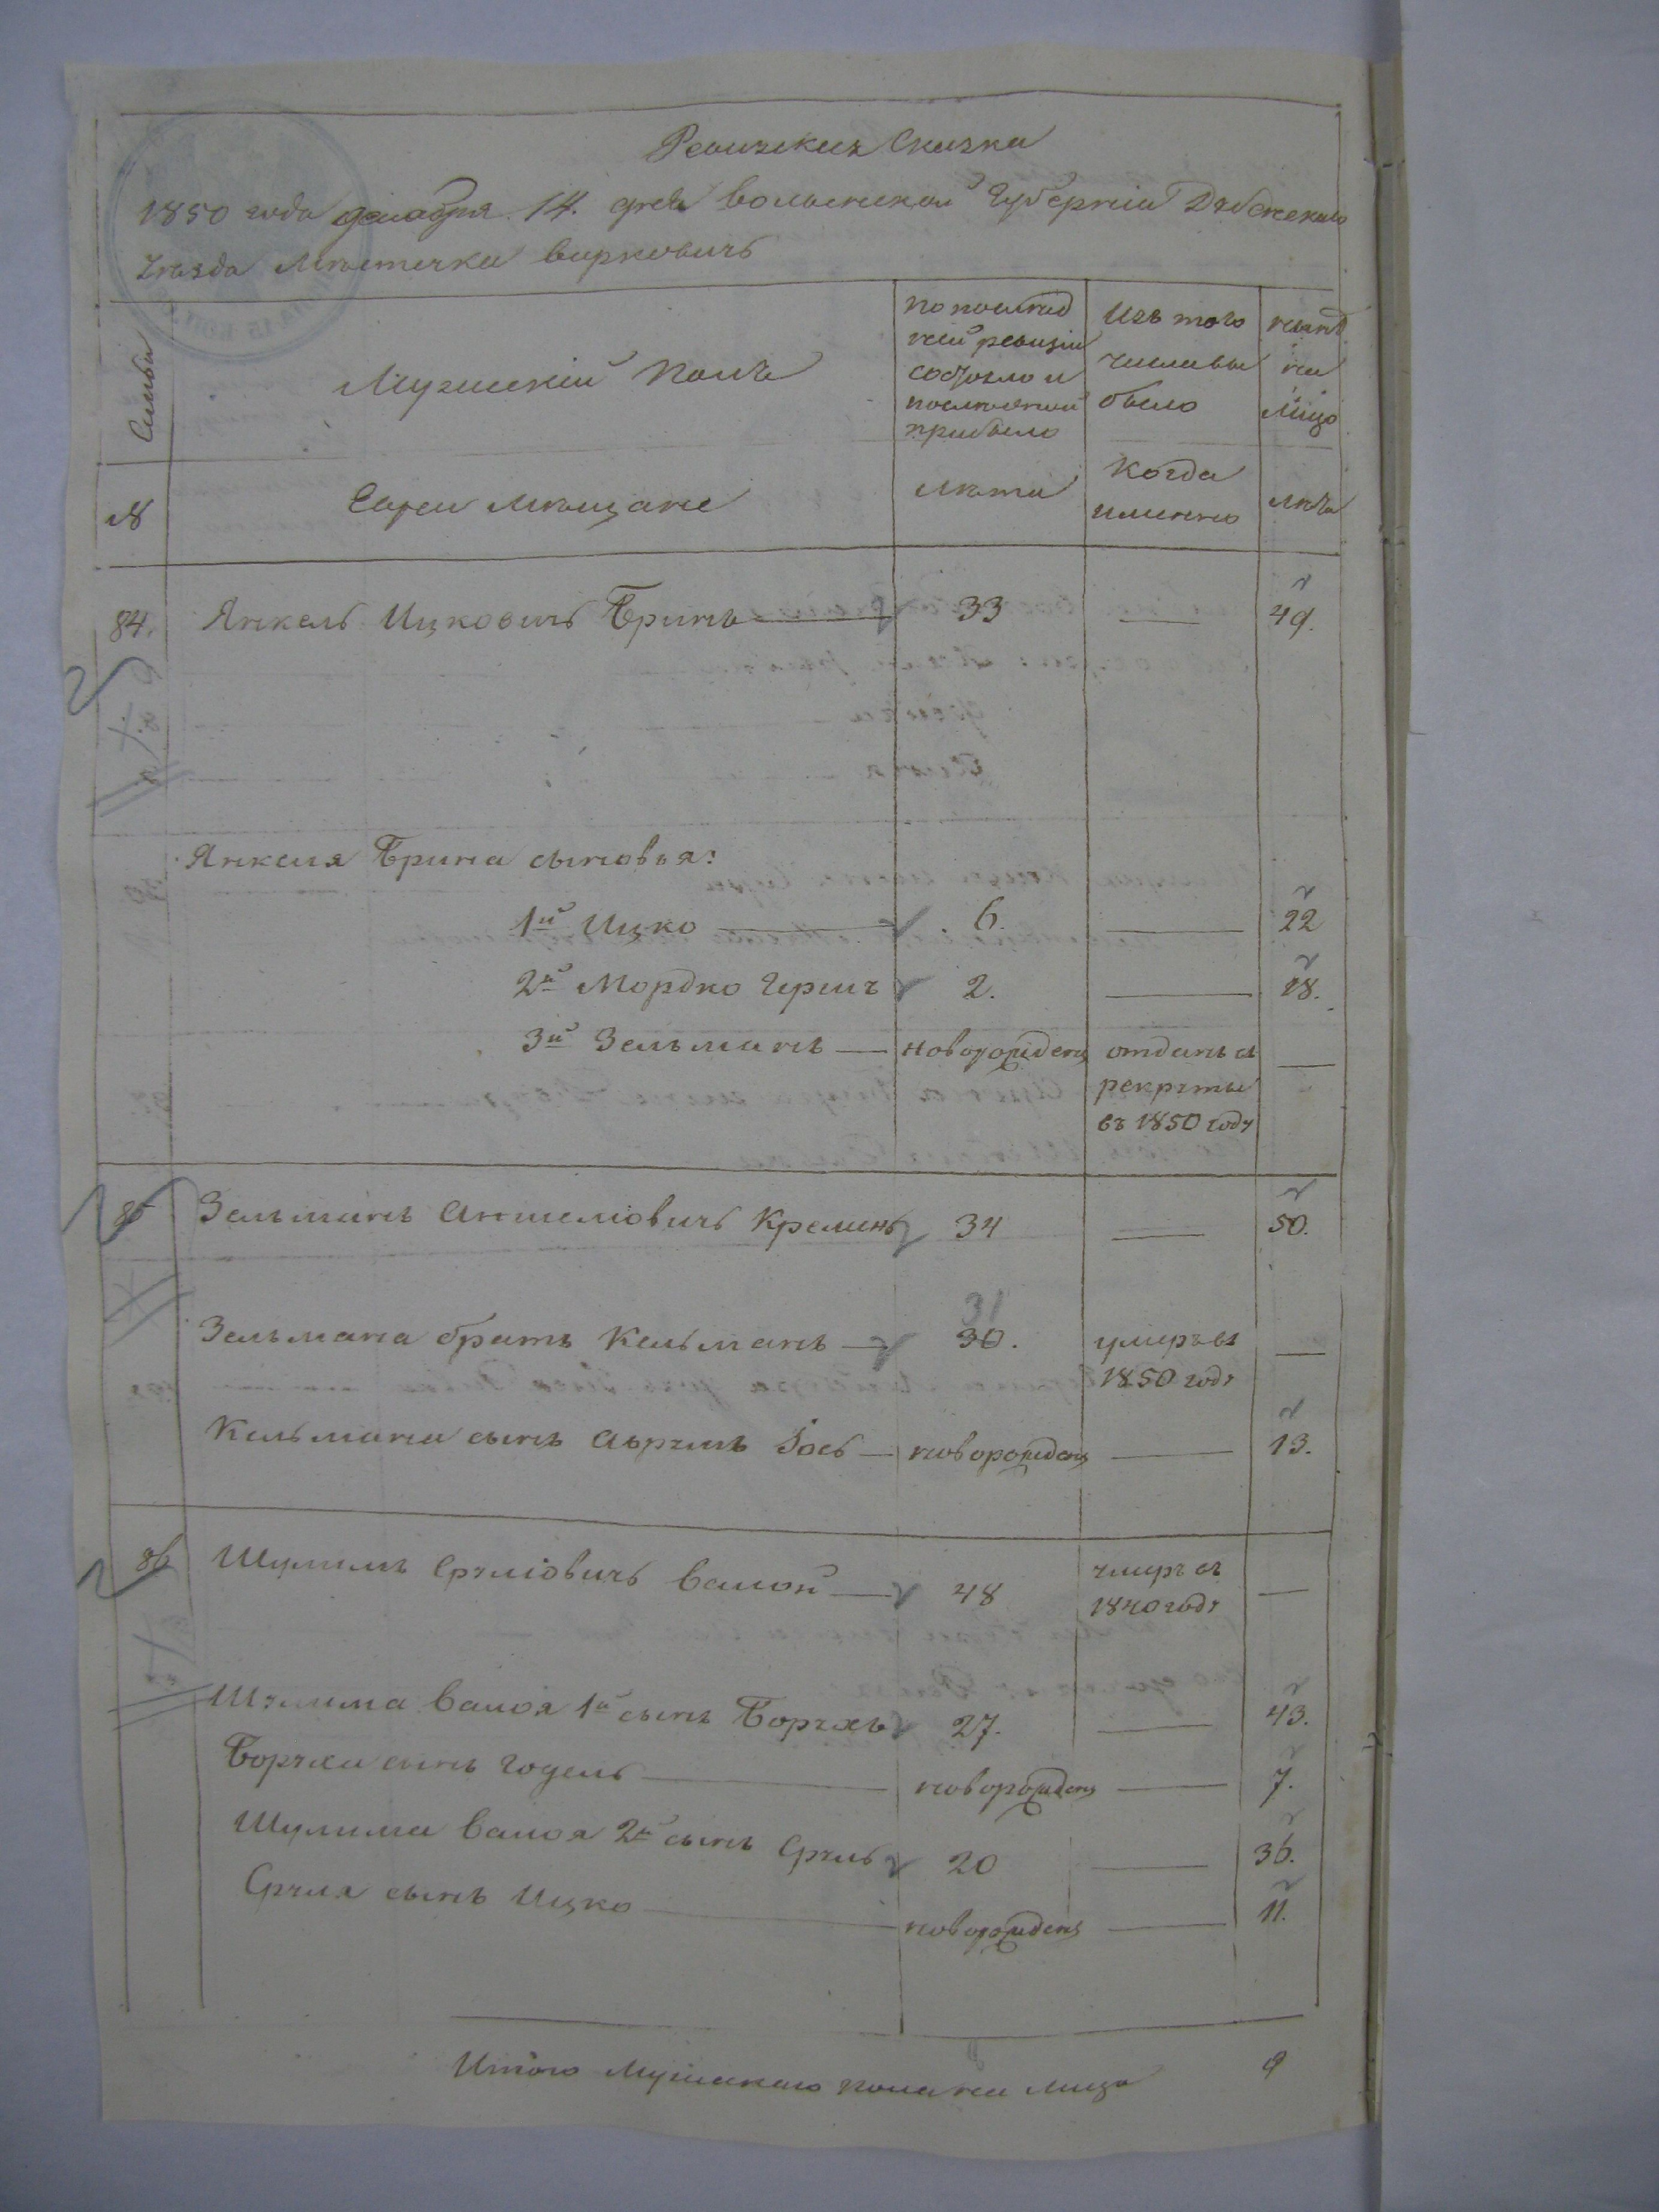 Ревизская Сказка
1850 года декабря 14. дня Волынской Губернiи Дубенскаго
Уезда Местечка Варковичъ
Семьи
Мужескiй Полъ
по послед
ней ревизiи
состояло и
после оной
прибыло
Изъ того
числа вы
было
ныне
на
лицо
№
Евреи мещане
лета
Когда
именно
лета
84. Янкель Ицковичъ Бринъ 33 — 49.
Янкеля Брина сыновья:
1й Ицко 6. — 22
2й Мордко Гершъ 2. — 18.
3й Зельманъ — новорожденъ отданъ въ —
рекруты
въ 1850 году
85 Зельманъ Аншелiовичъ Кременъ 34 — 50.
31
Зельмана братъ Кельманъ — 30. умеръ въ —
1850 году
Кельмана сынъ Аврумъ Iосъ — новорожденъ — 13.
86 Шулимъ Срулiовичъ Валой — 48 умеръ въ —
1840 году
Шулима Валоя 1й сынъ Борухъ 27. — 43.
Боруха сынъ Годель — новорожденъ — 7.
Шулима Валоя 2й сынъ Сруль 20 — 36.
Сруля сынъ Ицко — новорожденъ — 11.
Итого Мужескаго пола на лицо 9